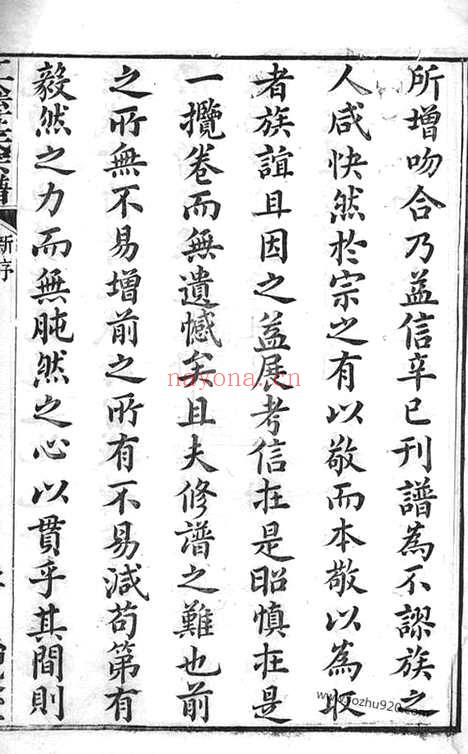 所增吻合乃益信辛巳刊譜為不謬族之
人咸快然於宗之有以敬而本敬以為取
者族誼且因之益展考信在是昭慎在是
一攬卷而無遺憾矣且夫修譜之難也前
之所無不易增前之所有不易減苟第有
毅然之力而無肫然之心以貫乎其間則
新序
nayona.cn